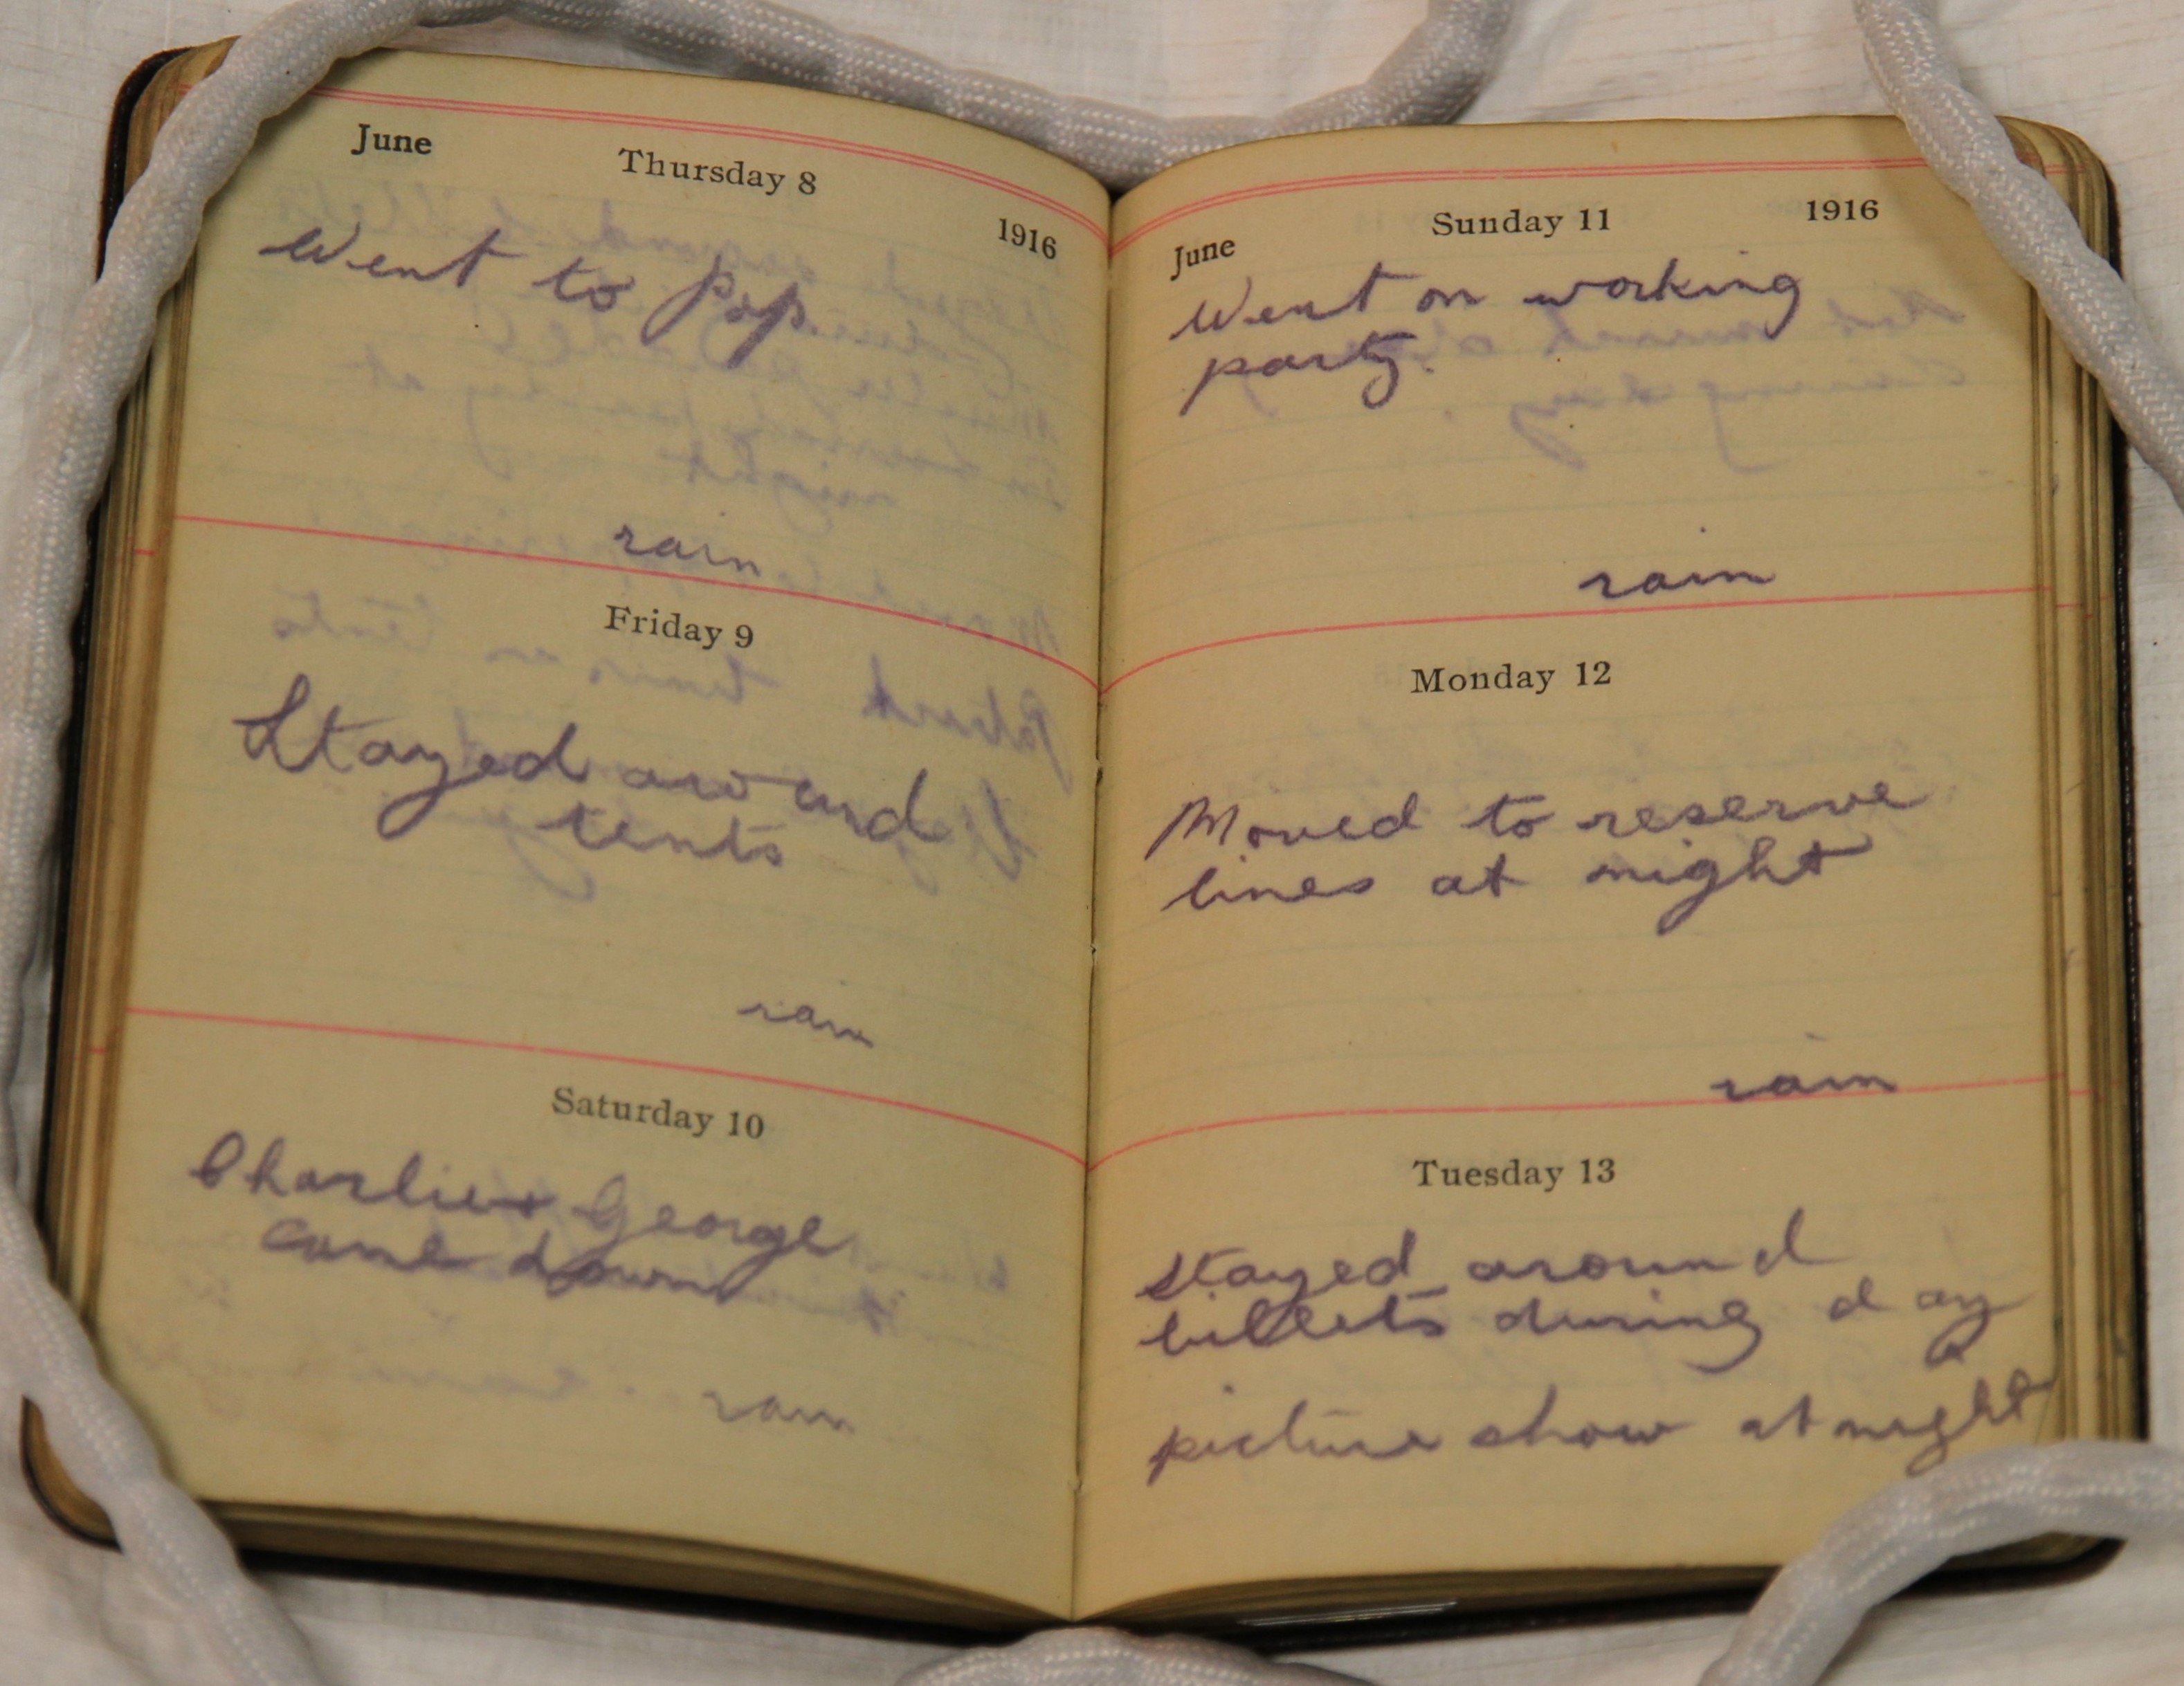 June Thursday 8 1916
Went to Pop
rain
Friday 9
Stayed around
tents
rain
Saturday 10
Charlie + George
came down
rain
June Sunday 11 1916
Went on working
party.
rain
Monday 12
Moved to reserve
lines at night
rain
Tuesday 13
Stayed around
billets during day
picture show at night